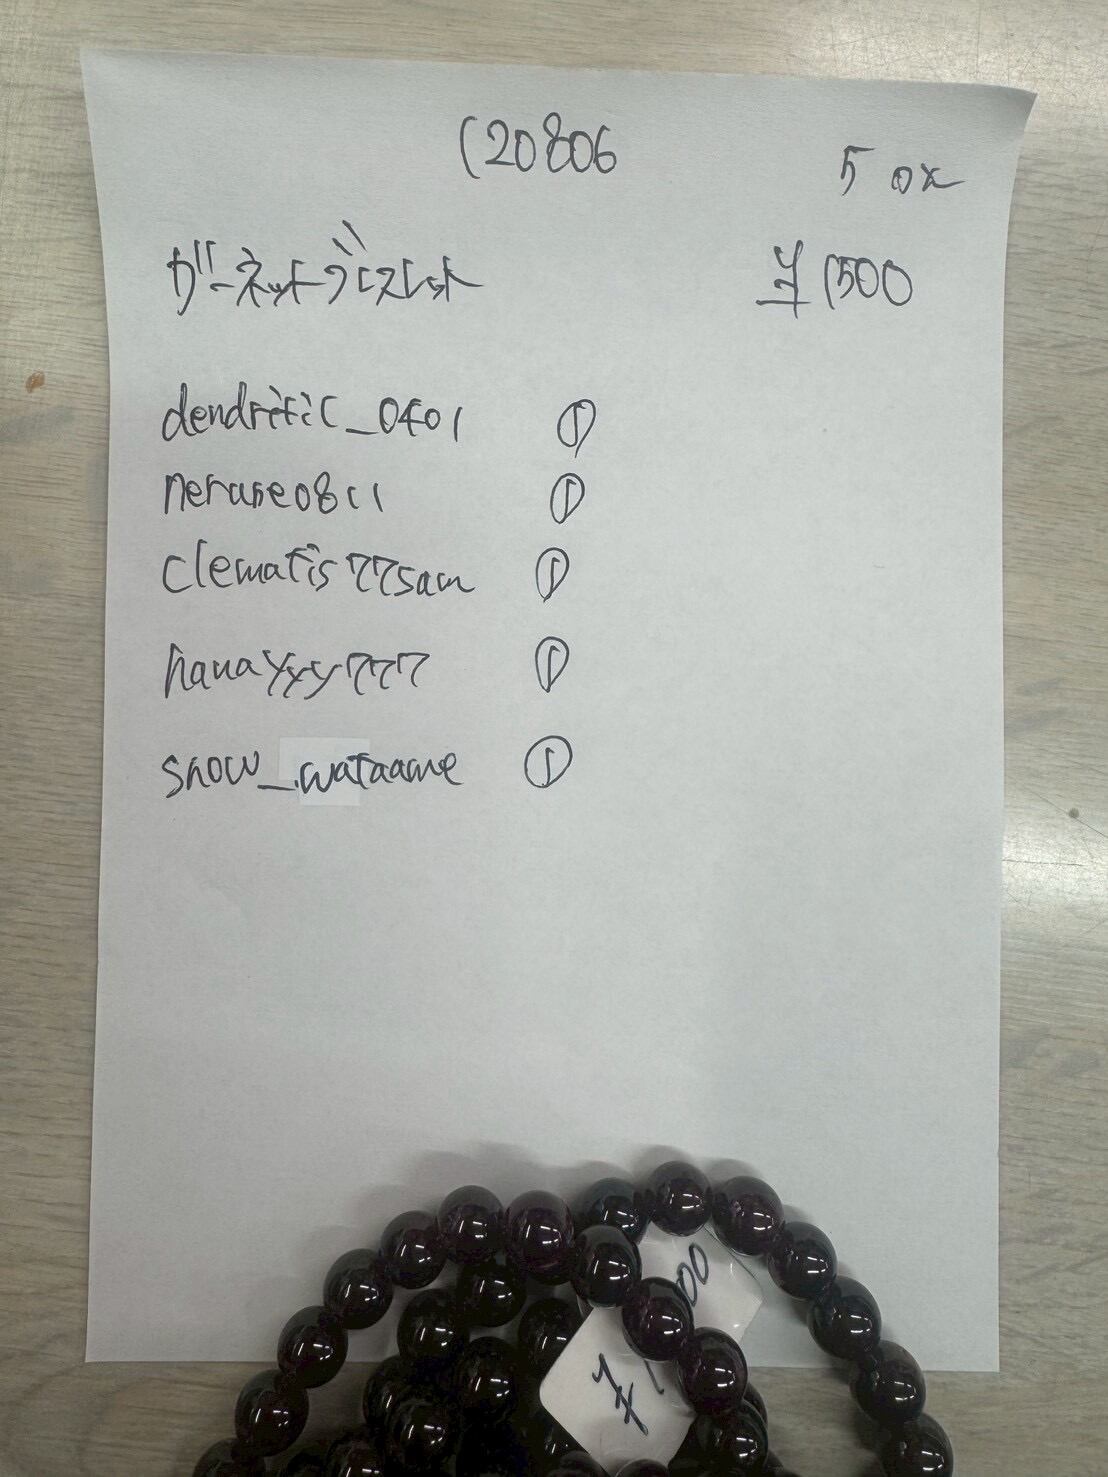 120806
5 ox
ガーネットブレスレット
¥1500
dendritic_0401 ①
nerune0811 ①
clematis77sam ①
hanayyy777 ①
snow_.wataame ①
00
¥1